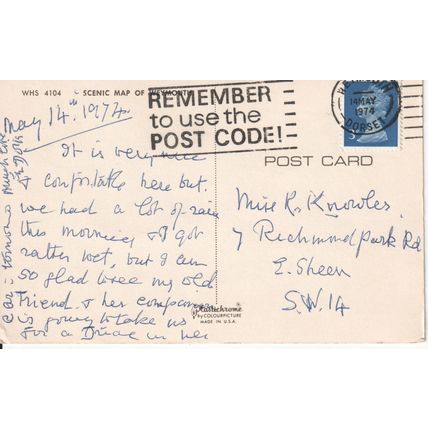 WHS 4104 SCENIC MAP OF WEYMOUTH
May 14th 1974
It is very nice
& comfortable here but
we had a lot of rain
this morning & I got
rather wet, but I am
so glad to see my old
Friend & her companion
is going to take us
For a Drive in her
car tomorrow much love
REMEMBER
to use the
POST CODE!
WEYMOUTH
14 MAY
1974
DORSET
POST CARD
Miss R. Knowles
7 Richmond Park Rd
E. Sheen
S.W.14
Plastichrome
by COLOURPICTURE
MADE IN U.S.A.